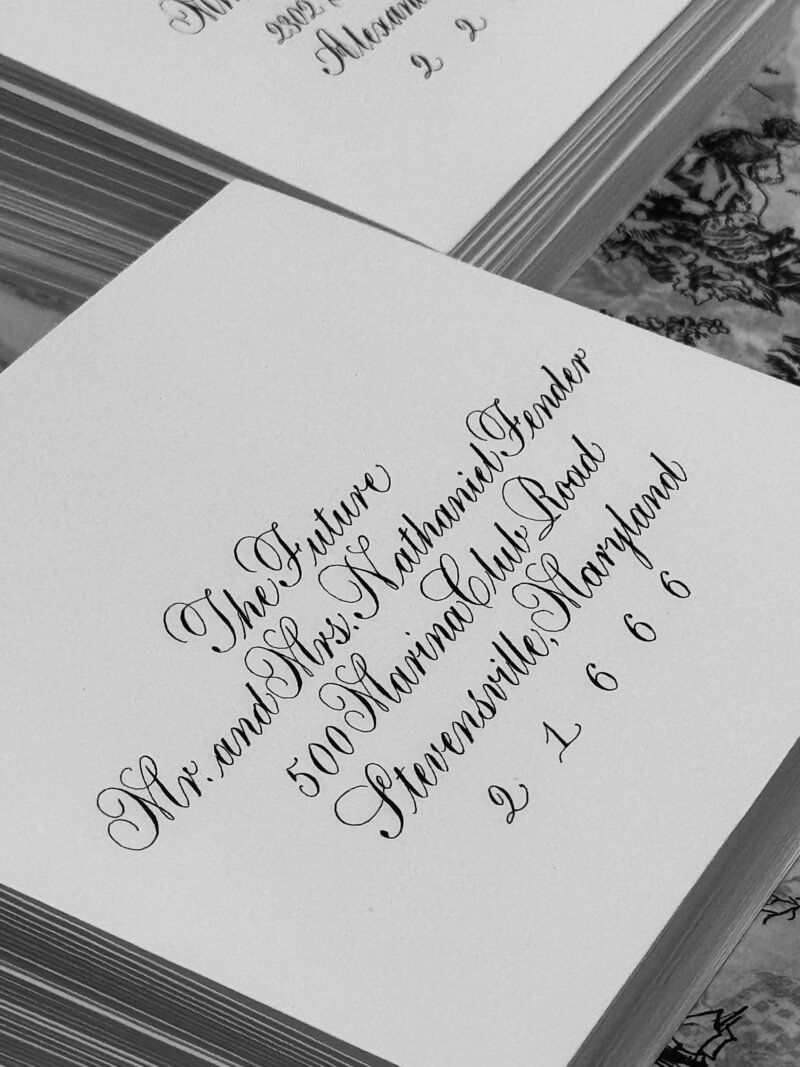 2302
2 2
The Future
Mr. and Mrs. Nathaniel Fender
500 Marina Club Road
Stevensville, Maryland
2 1 6 6 6